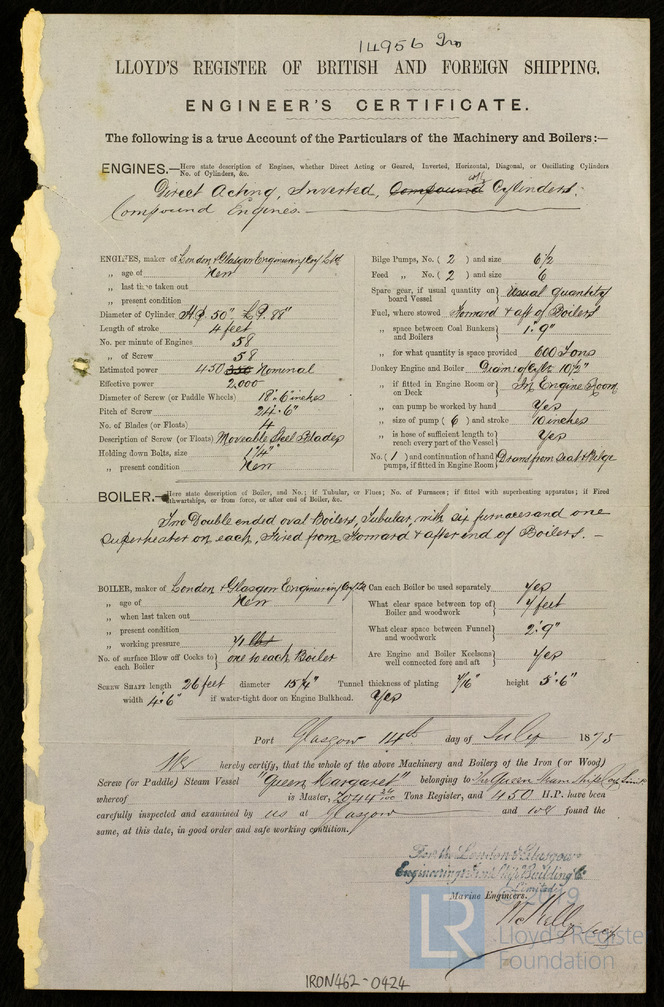 14956 Iro
LLOYD'S REGISTER OF BRITISH AND FOREIGN SHIPPING.
ENGINEER'S CERTIFICATE.
The following is a true Account of the Particulars of the Machinery and Boilers:—
ENGINES.—Here state description of Engines, whether Direct Acting or Geared, Inverted, Horizontal, Diagonal, or Oscillating Cylinders
No. of Cylinders, &c.
Direct Acting, Inverted, Compound Cylinders.
Compound Engines.
ENGINES, maker of London & Glasgow Engineering Coy Ltd
„ age of New
„ last time taken out
„ present condition
Diameter of Cylinder H.P. 50" L.P. 88"
Length of stroke 4 feet
No. per minute of Engines 58
„ of Screw 58
Estimated power 450 350 Nominal
Effective power 2,000
Diameter of Screw (or Paddle Wheels) 18'. 6 inches
Pitch of Screw 24'. 6"
No. of Blades (or Floats) 4
Description of Screw (or Floats) Moveable Steel Blades
Holding down Bolts, size 1¾"
„ present condition New
Bilge Pumps, No. ( 2 ) and size 6½
Feed „ No. ( 2 ) and size 6
Spare gear, if usual quantity on board Vessel } Usual Quantity
Fuel, where stowed Forward & aft of Boilers
„ space between Coal Bunkers and Boilers } 1'. 9"
„ for what quantity is space provided 600 Tons
Donkey Engine and Boiler Diam: of Cylr 10½"
„ if fitted in Engine Room or on Deck } In Engine Room
„ can pump be worked by hand Yes
„ size of pump ( 6 ) and stroke 10 inches
„ is hose of sufficient length to reach every part of the Vessel } Yes
No. ( 1 ) and continuation of hand pumps, if fitted in Engine Room } Draws from Sea & Bilge
BOILER.—Here state description of Boiler, and No.; if Tubular, or Flues; No. of Furnaces; if fitted with superheating apparatus; if Fired
athwartships, or from force, or after end of Boiler, &c.
Two Double ended oval Boilers, Tubular, with six furnaces and one
superheater on each, Fired from Forward & after end of Boilers. —
BOILER, maker of London & Glasgow Engineering Coy Ld
„ age of New
„ when last taken out
„ present condition
„ working pressure 71 lbs
No. of surface Blow off Cocks to each Boiler } one to each Boiler
Can each Boiler be used separately Yes
What clear space between top of Boiler and woodwork } 7 feet
What clear space between Funnel and woodwork } 2'. 9"
Are Engine and Boiler Keelsons well connected fore and aft } Yes
SCREW SHAFT length 26 feet diameter 15¼" Tunnel thickness of plating 7/16" height 5'. 6"
width 4'. 6" if water-tight door on Engine Bulkhead. Yes
Port Glasgow 14th day of July 1875
We hereby certify, that the whole of the above Machinery and Boilers of the Iron (or Wood)
Screw (or Paddle) Steam Vessel "Queen Margaret" belonging to The Queen Steam Ship Coy Limd
whereof is Master, Tons Register, and 450 H.P. have been
carefully inspected and examined by us at Glasgow and we found the
same, at this date, in good order and safe working condition.
For the London & Glasgow
Engineering & Iron Ship Building Co
(Limited)
Marine Engineers.
© 2019
LR
Lloyd's Register
Foundation
IRON462-0424